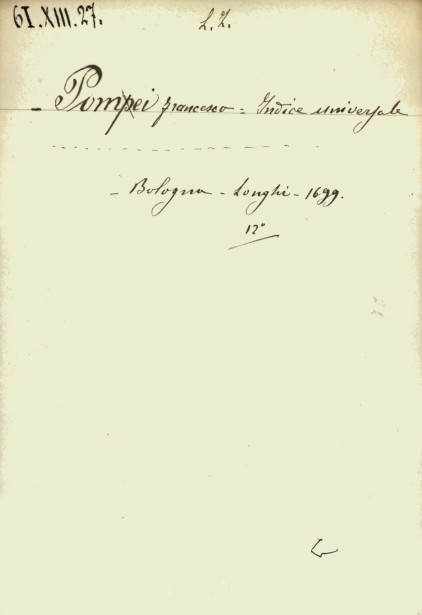 61.XIII.27.
L. Z.
– Pompei Francesco = Indice universale
– Bologna – Longhi – 1699.
12°